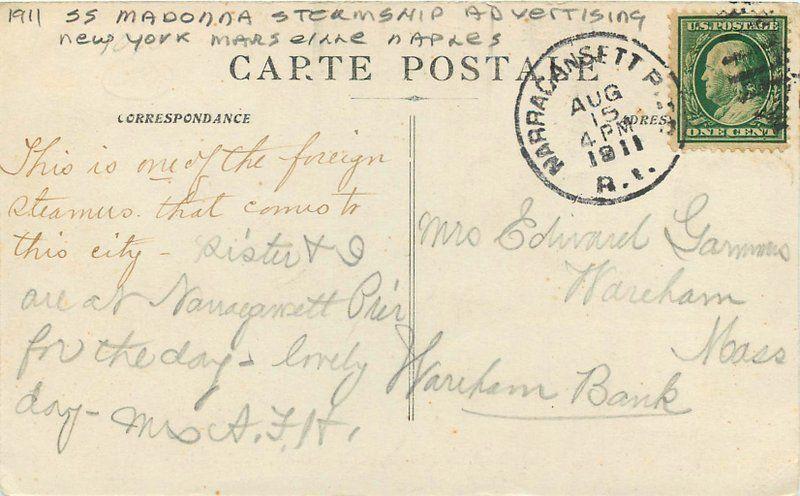 1911 SS MADONNA STERMSHIP ADVERTISING
NEW YORK MARSEILLE NAPLES
CARTE POSTALE
CORRESPONDANCE
ADRESSE
U.S. POSTAGE
ONE CENT
NARRAGANSETT PIER
AUG
15
4 PM
1911
R.I.
This is one of the foreign
steamers that comes to
this city - Sister & I
are at Narragansett Pier
for the day - lovely
day - Mrs A. F. H.
Mrs Edward Gammons
Wareham
Mass
Wareham Bank